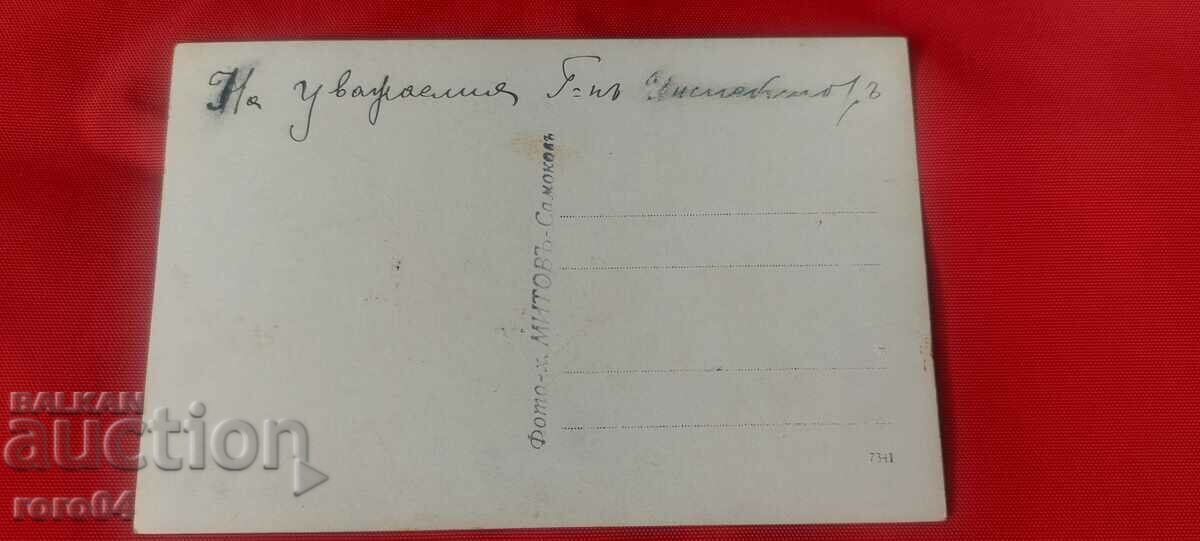 На уважаемия Г=нъ
Фото-х. МИТОВЪ-Самоковъ
7341
BALKAN
auction
roro04